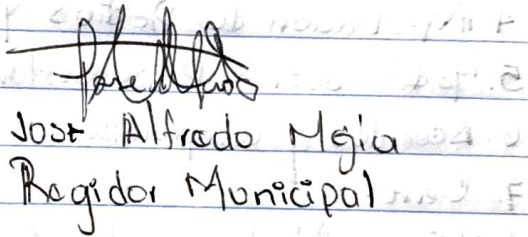 José Alfredo Mgia
Regidor Municipal